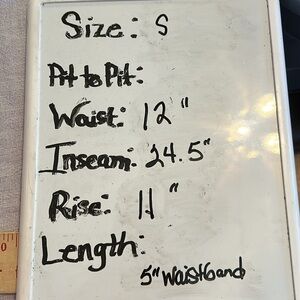 Size: S
Pit to Pit:
Waist: 12"
Inseam: 24.5"
Rise: 11"
Length:
5" Waistband